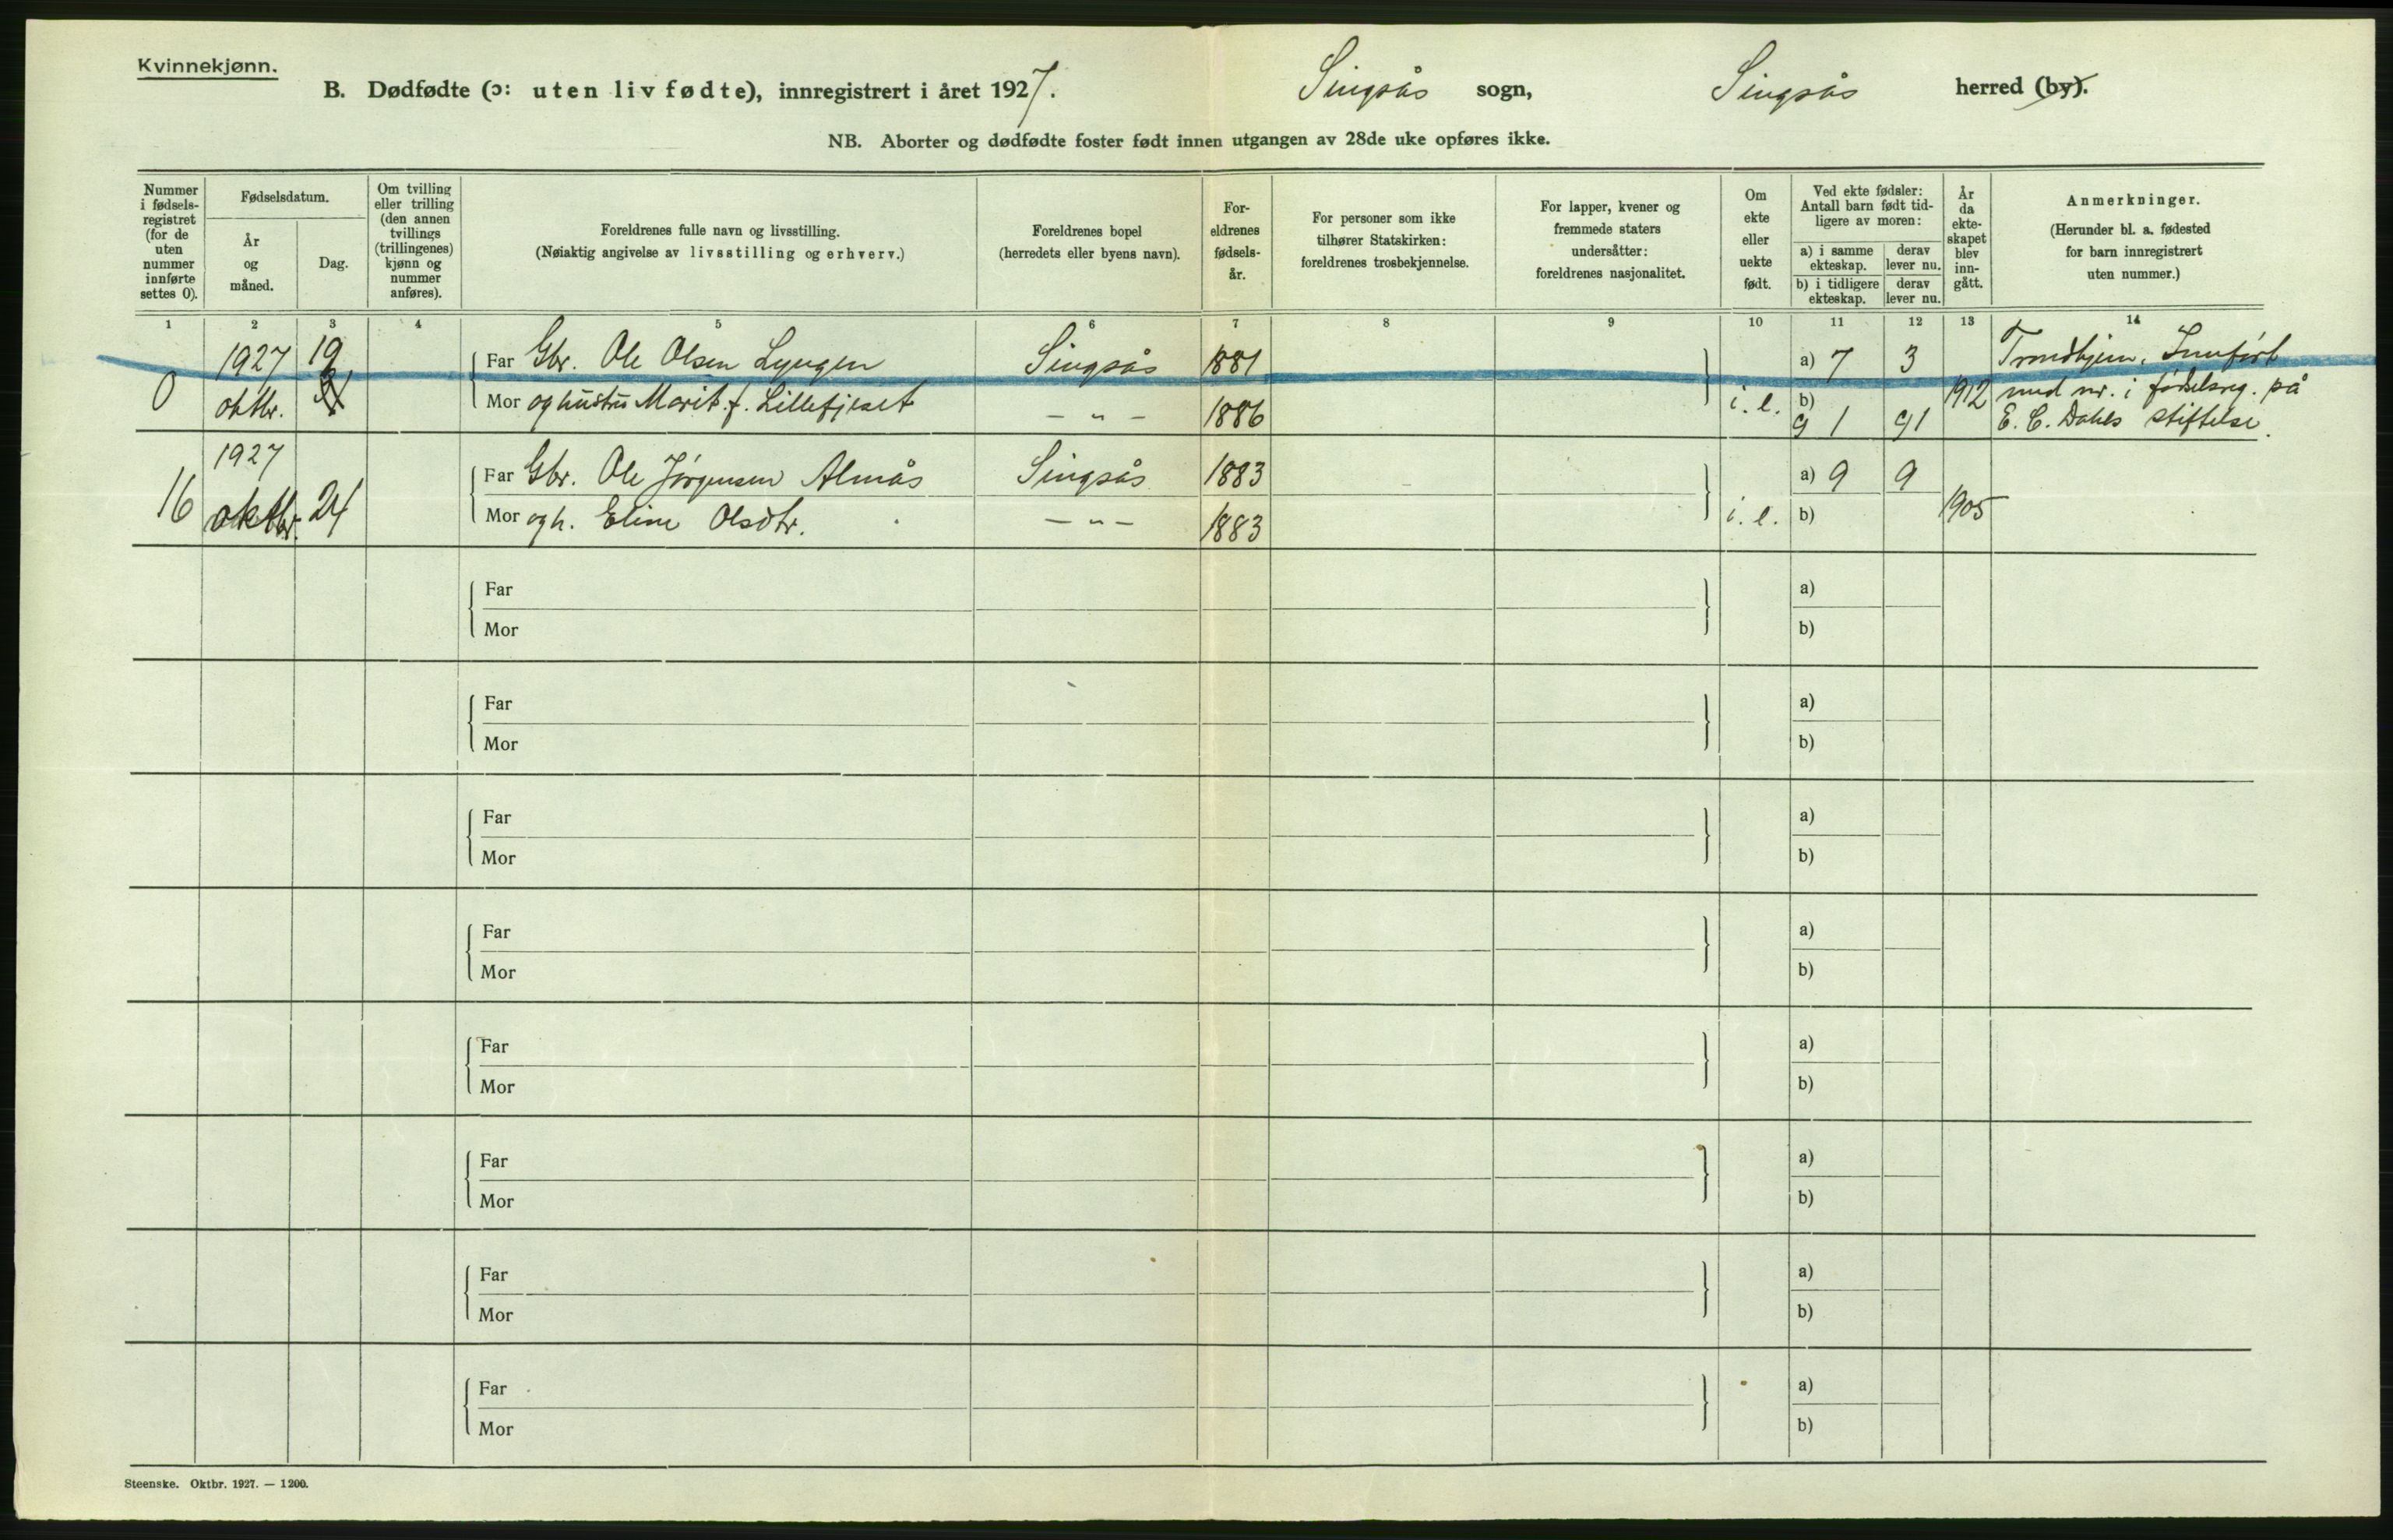 Kvinnekjønn.
B. Dødfødte (ɔ: uten liv fødte), innregistrert i året 1927. Singsås sogn, Singsås herred (by).
NB. Aborter og dødfødte foster født innen utgangen av 28de uke opføres ikke.
Nummer
i fødsels-
registret
(for de
uten
nummer
innførte
settes 0).
Fødselsdatum.
År
og
måned.
Dag.
Om tvilling
eller trilling
(den annen
tvillings
(trillingenes)
kjønn og
nummer
anføres).
Foreldrenes fulle navn og livsstilling.
(Nøiaktig angivelse av livsstilling og erhverv.)
Foreldrenes bopel
(herredets eller byens navn).
For-
eldrenes
fødsels-
år.
For personer som ikke
tilhører Statskirken:
foreldrenes trosbekjennelse.
For lapper, kvener og
fremmede staters
undersåtter:
foreldrenes nasjonalitet.
Om
ekte
eller
uekte
født.
Ved ekte fødsler:
Antall barn født tid-
ligere av moren:
a) i samme
ekteskap.
derav
lever nu.
b) i tidligere
ekteskap.
derav
lever nu.
År
da
ekte-
skapet
blev
inn-
gått.
Anmerkninger.
(Herunder bl. a. fødested
for barn innregistrert
uten nummer.)
1 2 3 4 5 6 7 8 9 10 11 12 13 14
1927 19 Far Gbr. Ole Olsen Lyngen Singsås 1881 a) 7 3 Trondhjem. Innført
0 oktbr. Mor og hustru Marit f. Lillefjeset — " — 1886 i. e. b) 1912 med nr. i fødselsreg. på
g 1 g1 E. C. Dahls stiftelse.
1927 Far Gbr. Ole Jørgensen Almås Singsås 1883 a) 9 9
16 oktbr. 24 Mor og h. Eline Olsdtr. — " — 1883 i. e. b) 1905
Far a)
Mor b)
Far a)
Mor b)
Far a)
Mor b)
Far a)
Mor b)
Far a)
Mor b)
Far a)
Mor b)
Far a)
Mor b)
Far a)
Mor b)
Steenske. Oktbr. 1927. — 1200.